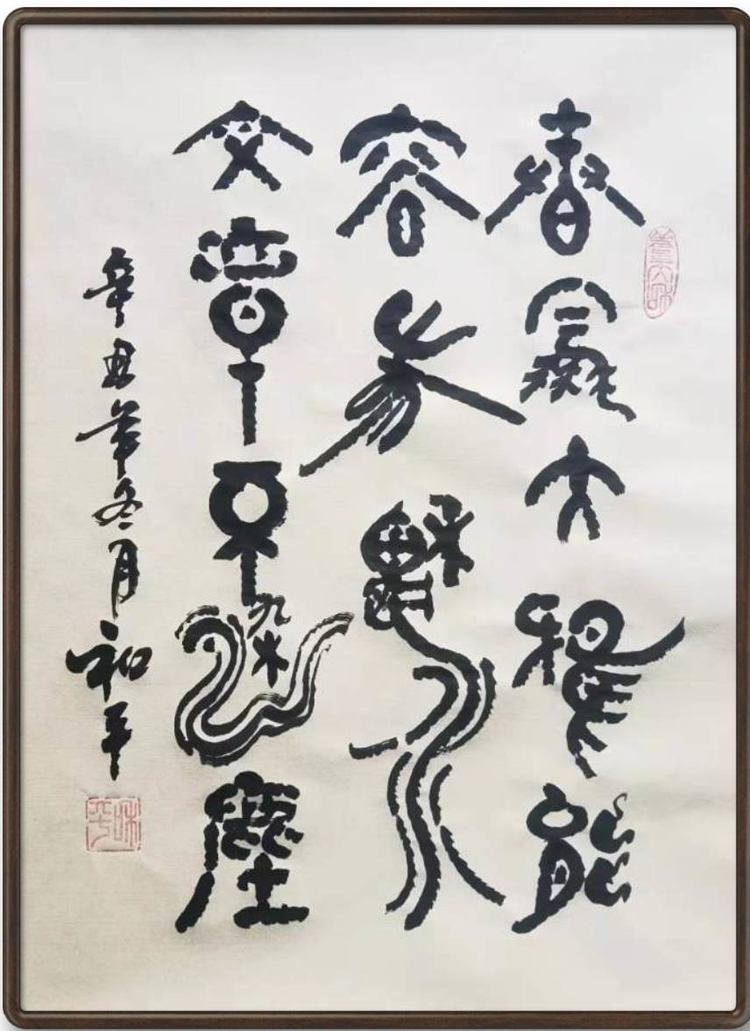 春風大雅能
容物秋水
文章不染塵
辛丑年冬月和平
和平